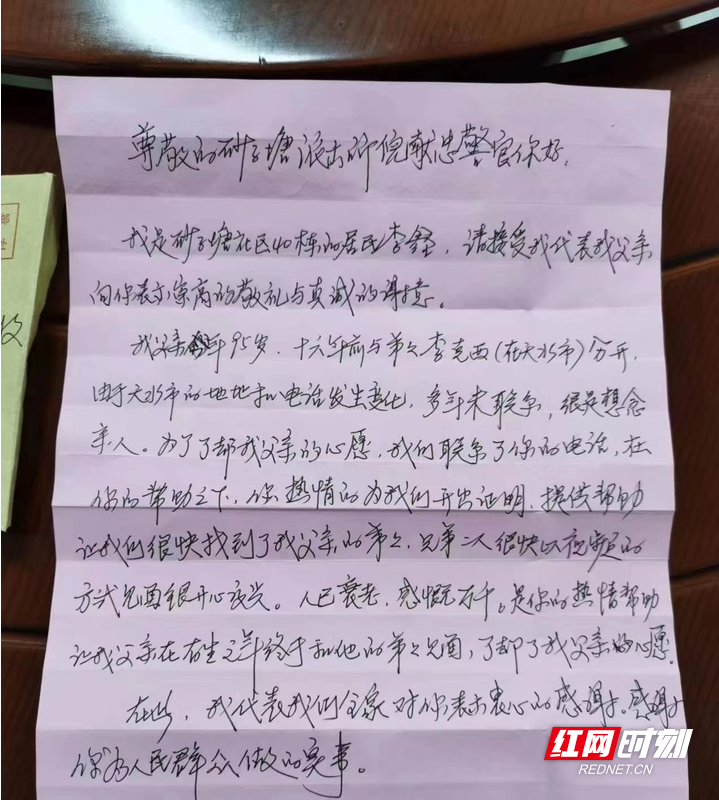 尊敬的砂子塘派出所倪献忠警官你好，
我是砂子塘社区40栋的居民李鑫，请接受我代表我父亲
向你表示崇高的敬礼与真诚的谢意。
我父亲今年95岁．十六年前与弟弟李克西(在天水市)分开，
由于天水市的地址和电话发生变化，多年未联系，很是想念
亲人。为了了却我父亲的心愿，我们联系了你的电话，在
你的帮助之下，你热情的为我们开出证明、提供帮助
让我们很快找到了我父亲的弟弟，兄弟二人很快以视频的
方式见面很开心高兴。人已衰老，感慨万千。是你的热情帮助
让我父亲在有生之年终于和他的弟弟见面，了却了我父亲的心愿。
在此，我代表我们全家对你表示衷心的感谢。感谢
你为人民群众做的实事。
邮
处
收
红网时刻
REDNET.CN